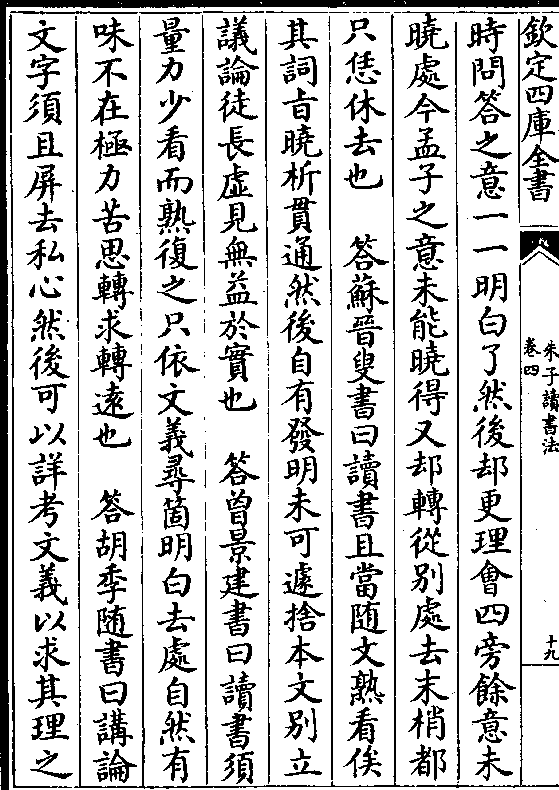 欽定四庫全書
朱子讀書法
卷四
十九
時問答之意一一明白了然後却更理會四旁餘意未
曉處今孟子之意未能曉得又却轉從別處去末梢都
只恁休去也　答蘇晉叟書曰讀書且當隨文熟看俟
其詞㫖曉析貫通然後自有發明未可遽捨本文別立
議論徒長虛見無益於實也　答曾景建書曰讀書須
量力少看而熟復之只依文義尋箇明白去處自然有
味不在極力苦思轉求轉逺也　答胡季随書曰講論
文字須且屏去私心然後可以詳考文義以求其理之